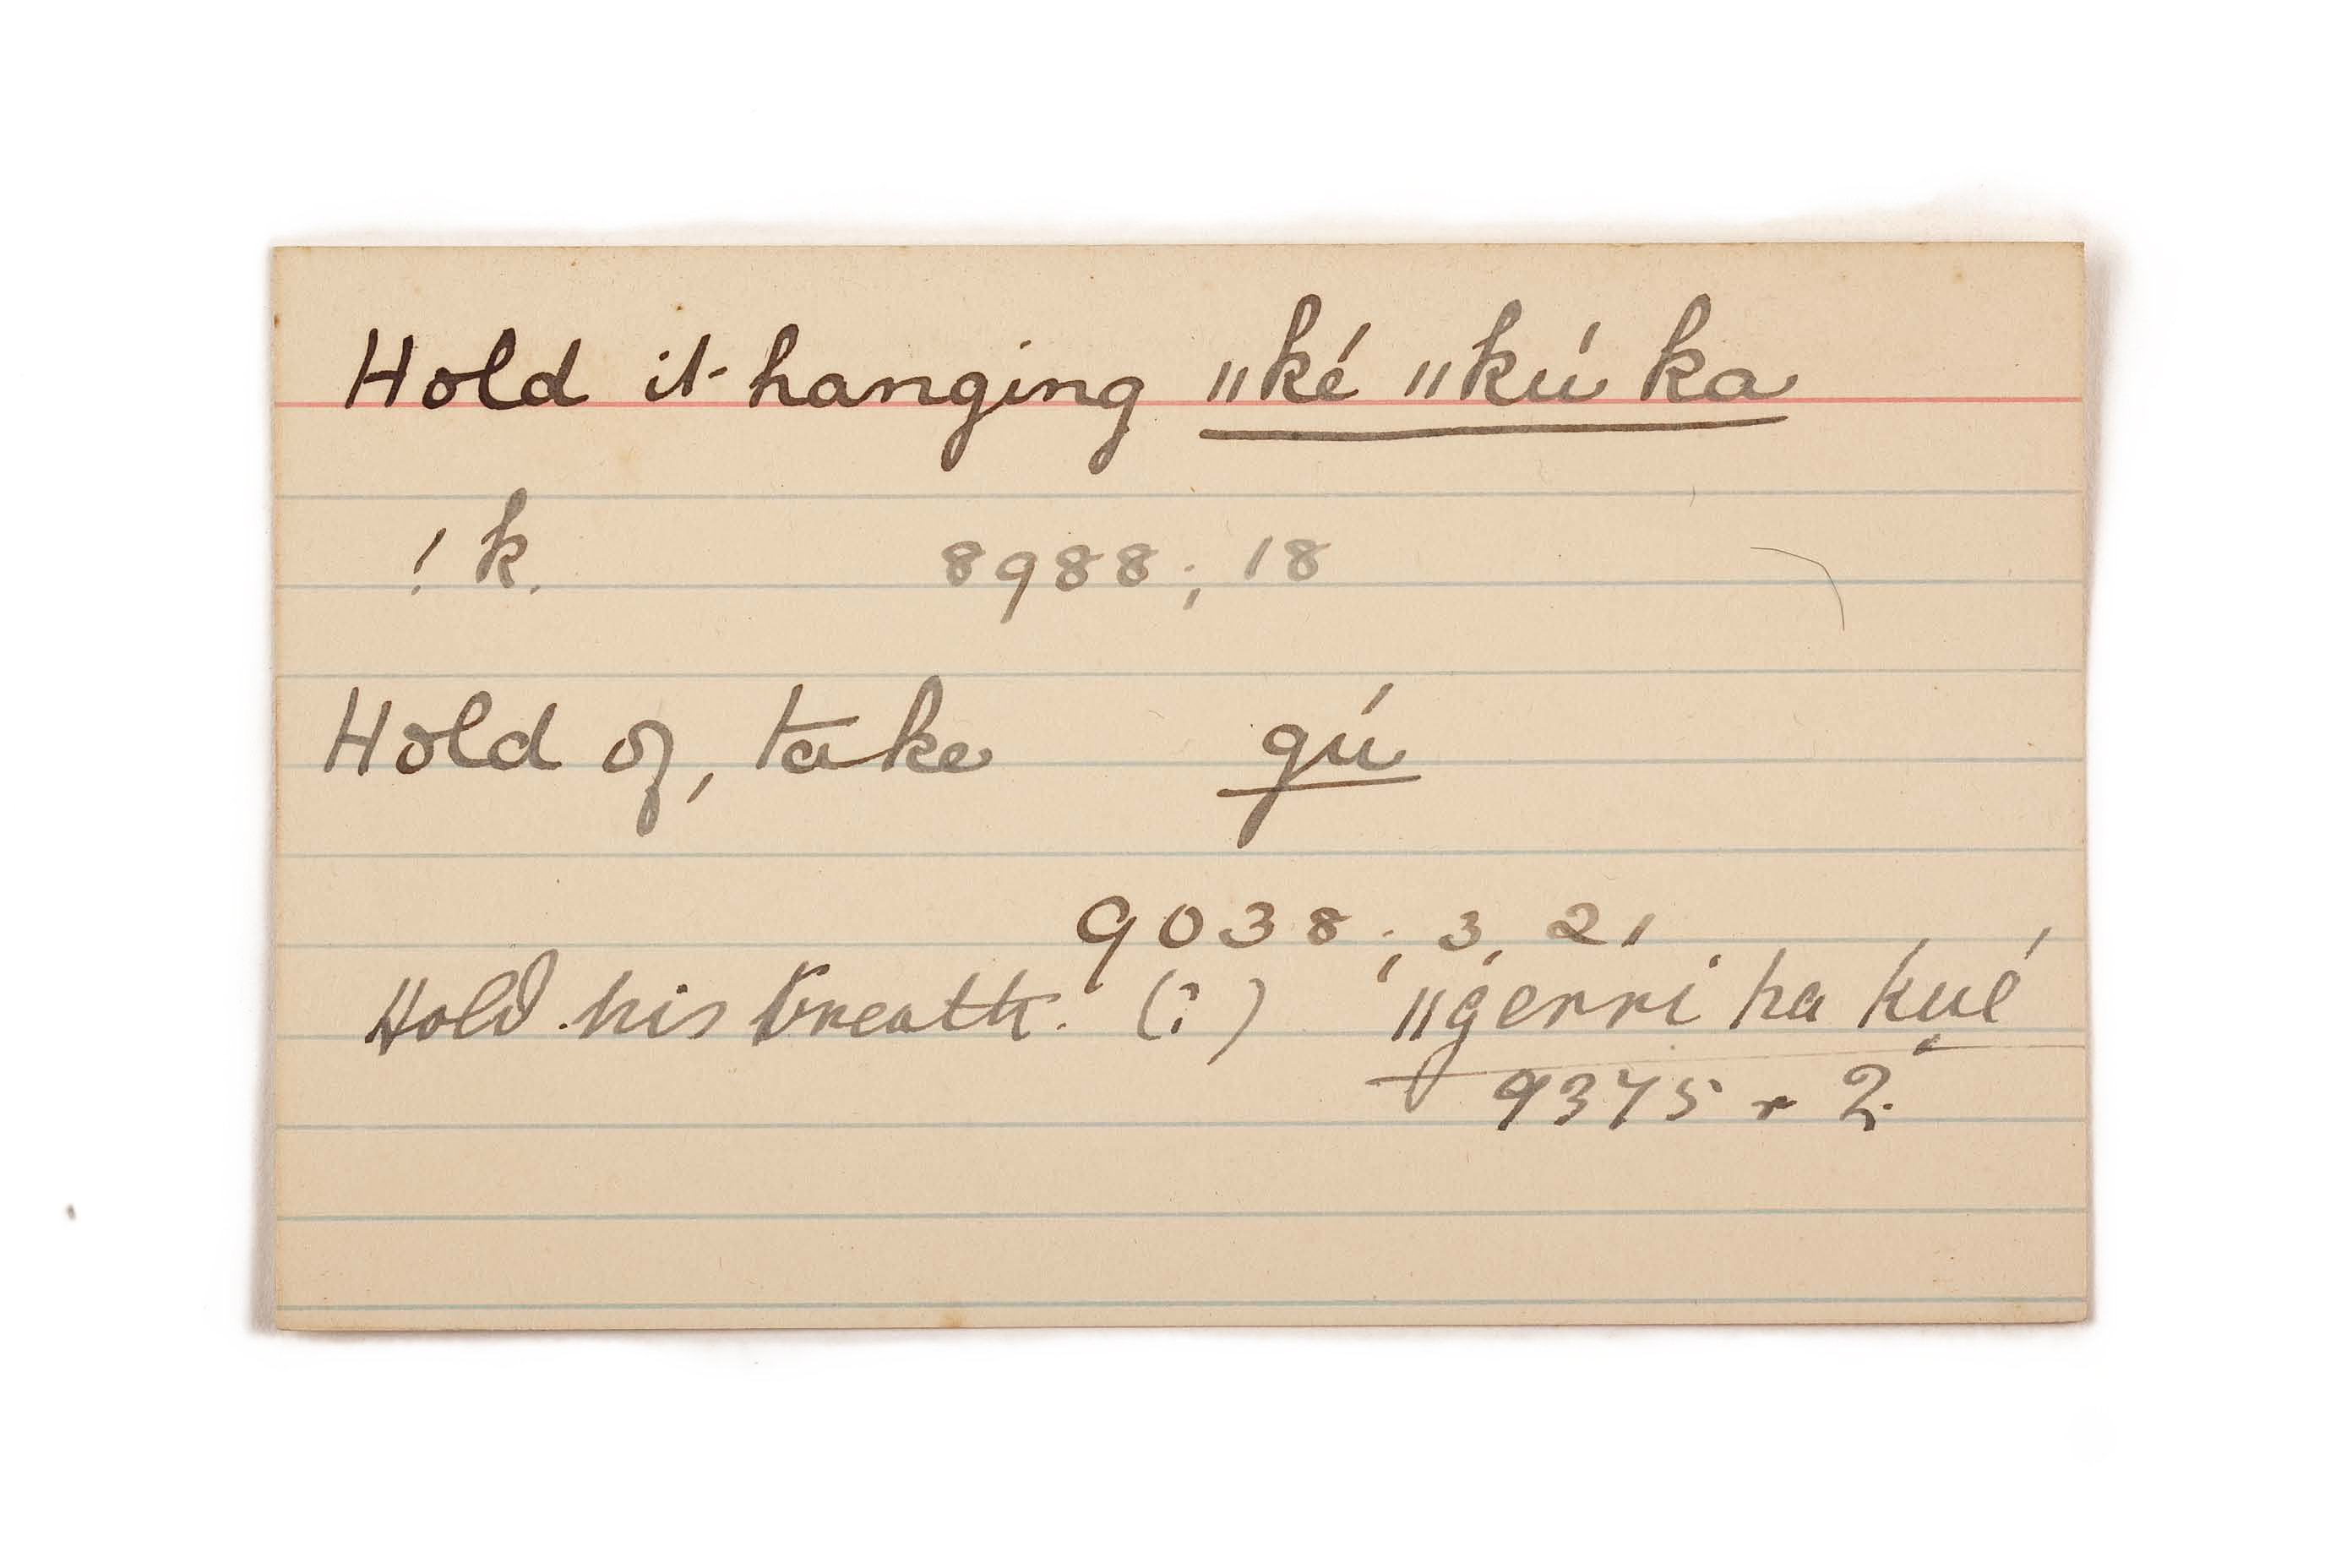 Hold it hanging ǁké ǁkú ka
! k. 8988; 18
Hold of, take gú
9038; 3, 21
Hold his breath. (?) ǁgerri ha kué
9375 r 2.